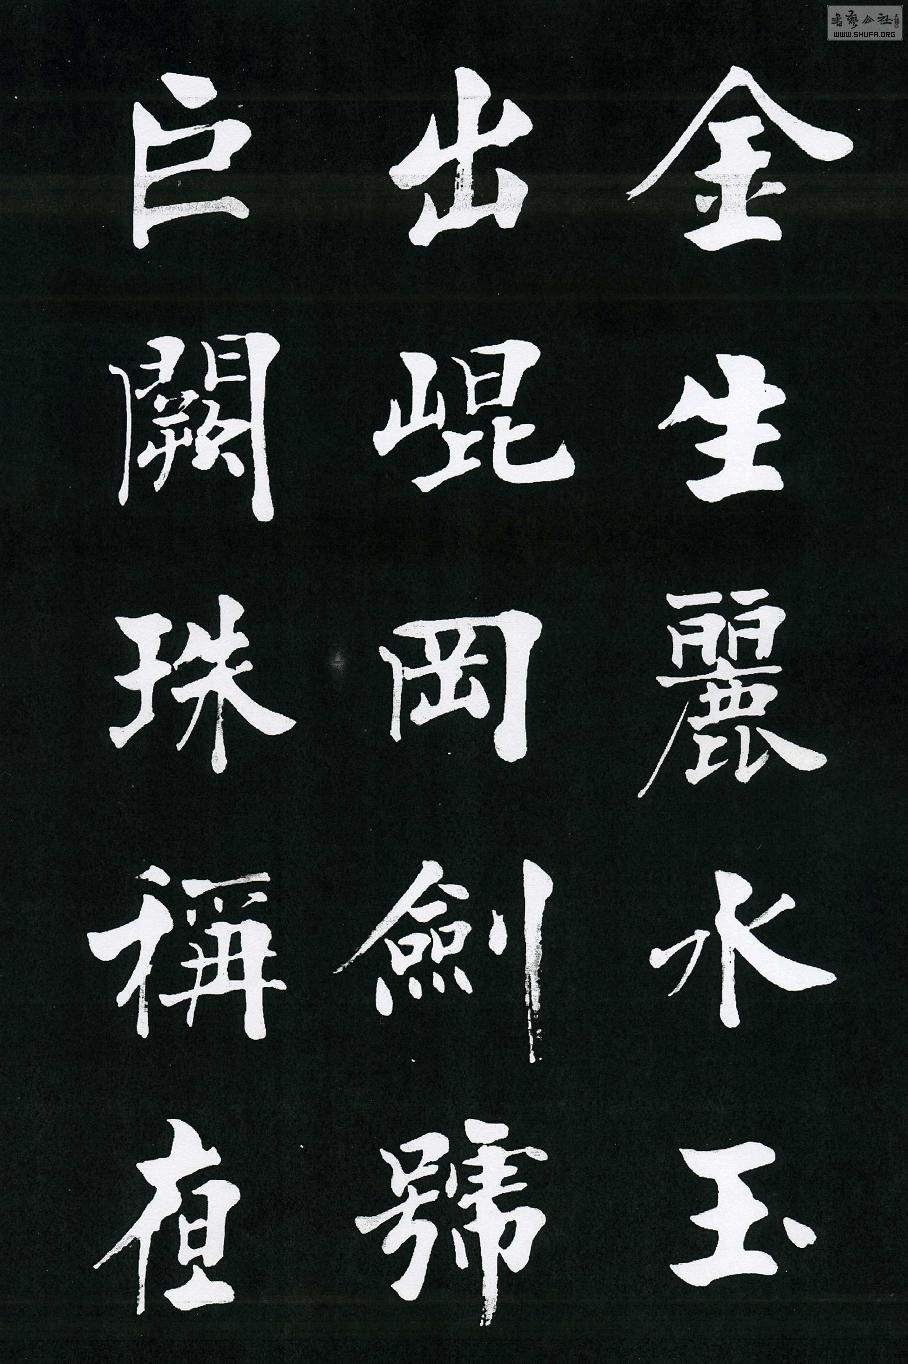 金生麗水玉
出崐岡劍號
巨闕珠稱
書藝公社
WWW.SHUFA.ORG